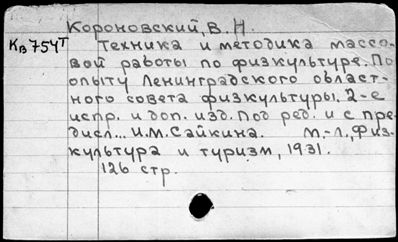 Короновский, В. Н.
Кв754т
Техника и методика массо-
вой работы по физкультуре. По
опыту Ленинградского област-
ного совета физкультуры. 2-е
испр. и доп. изд. Под ред. и с пре-
дисл... И.М. Сайкина. М.-Л., Физ-
культура и туризм, 1931.
126 стр.